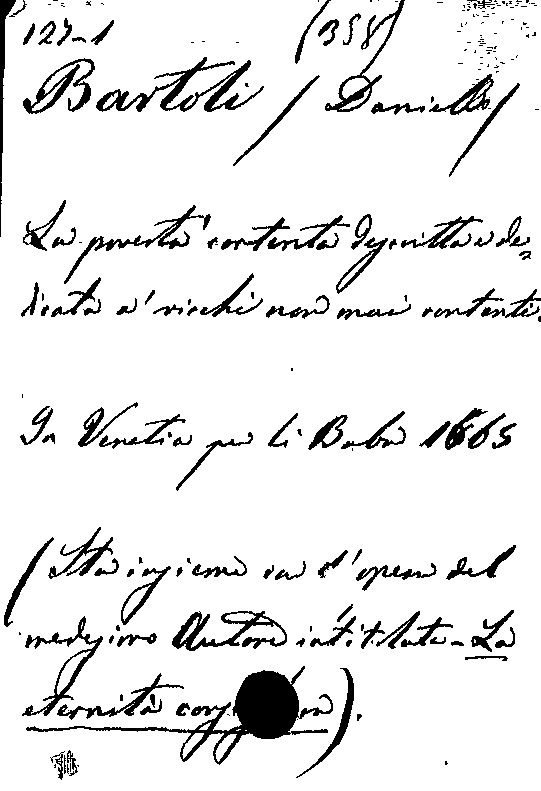 127-1 (358)
Bartoli / Daniello /
La povertà contenta descritta e de=
dicata a' ricchi non mai contenti.
In Venetia per li Baba 1665
(Sta insieme con l'opera del
medesimo Autore intitolata - La
eternità